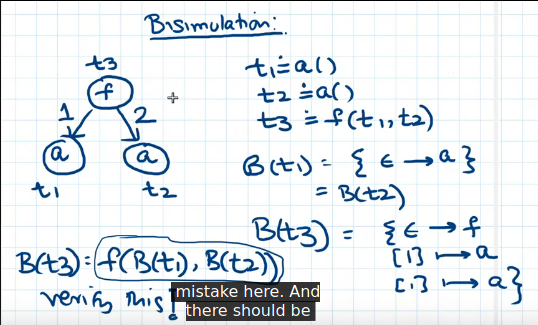 Bisimulation:
t3
f
1 2
a a
t1 t2
t1 ≐ a()
t2 ≐ a()
t3 ≐ f(t1, t2)
B(t1) = { ε → a }
= B(t2)
B(t3) = { ε → f
[1] ↦ a
[1] ↦ a }
B(t3) = f(B(t1), B(t2))
verify this!
mistake here. And
there should be